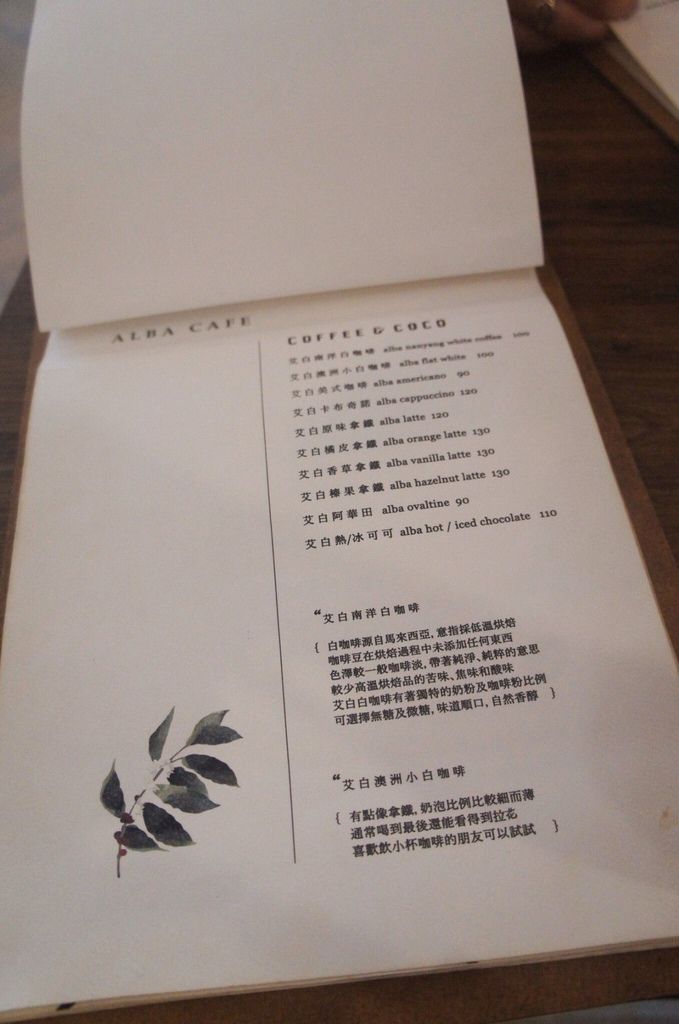 ALBA CAFE
COFFEE & COCO
艾白南洋白咖啡 alba nanyang white coffee 100
艾白澳洲小白咖啡 alba flat white 100
艾白美式咖啡 alba americano 90
艾白卡布奇諾 alba cappuccino 120
艾白原味拿鐵 alba latte 120
艾白橘皮拿鐵 alba orange latte 130
艾白香草拿鐵 alba vanilla latte 130
艾白榛果拿鐵 alba hazelnut latte 130
艾白阿華田 alba ovaltine 90
艾白熱/冰可可 alba hot / iced chocolate 110
“艾白南洋白咖啡
{ 白咖啡源自馬來西亞, 意指採低溫烘焙
咖啡豆在烘焙過程中未添加任何東西
色澤較一般咖啡淡, 帶著純淨、純粹的意思
較少高溫烘焙品的苦味、焦味和酸味
艾白白咖啡有著獨特的奶粉及咖啡粉比例
可選擇無糖及微糖, 味道順口, 自然香醇 }
“艾白澳洲小白咖啡
{ 有點像拿鐵, 奶泡比例比較細而薄
通常喝到最後還能看得到拉花
喜歡飲小杯咖啡的朋友可以試試 }